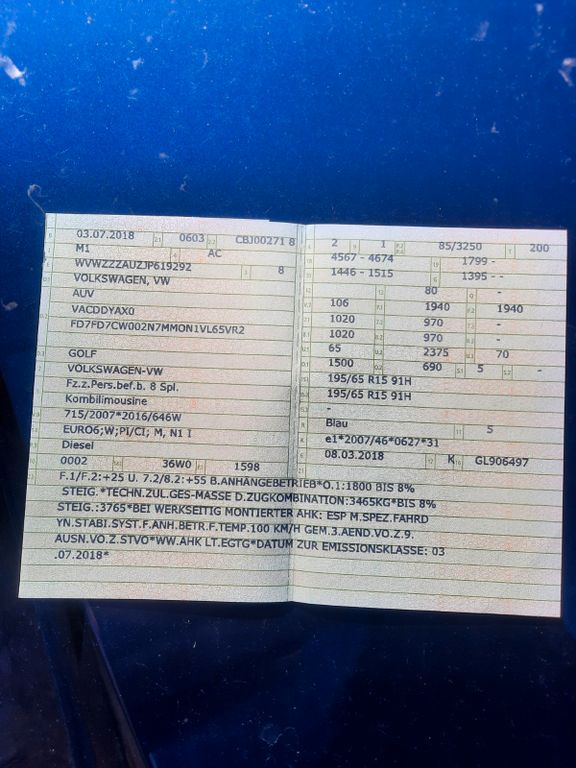 03.07.2018 0603 CBJ00271 8
M1 AC
WVWZZZAUZJP619292 8
VOLKSWAGEN, VW
AUV
VACDDYAX0
FD7FD7CW002N7MMON1VL65VR2
GOLF
VOLKSWAGEN-VW
Fz.z.Pers.bef.b. 8 Spl.
Kombilimousine
715/2007*2016/646W
EURO6;W;PI/CI; M, N1 I
Diesel
0002 36W0 1598
2 1 85/3250 200
4567 - 4674 1799 -
1446 - 1515 1395 - -
- 80 -
106 1940 1940
1020 970 -
1020 970 -
65 2375 70
1500 690 5 -
195/65 R15 91H
195/65 R15 91H
-
Blau 5
e1*2007/46*0627*31
08.03.2018 K GL906497
F.1/F.2:+25 U. 7.2/8.2:+55 B.ANHÄNGEBETRIEB*O.1:1800 BIS 8%
STEIG.*TECHN.ZUL.GES-MASSE D.ZUGKOMBINATION:3465KG*BIS 8%
STEIG.:3765*BEI WERKSEITIG MONTIERTER AHK: ESP M.SPEZ.FAHRD
YN.STABI.SYST.F.ANH.BETR.F.TEMP.100 KM/H GEM.3.AEND.VO.Z.9.
AUSN.VO.Z.STVO*WW.AHK LT.EGTG*DATUM ZUR EMISSIONSKLASSE: 03
.07.2018*